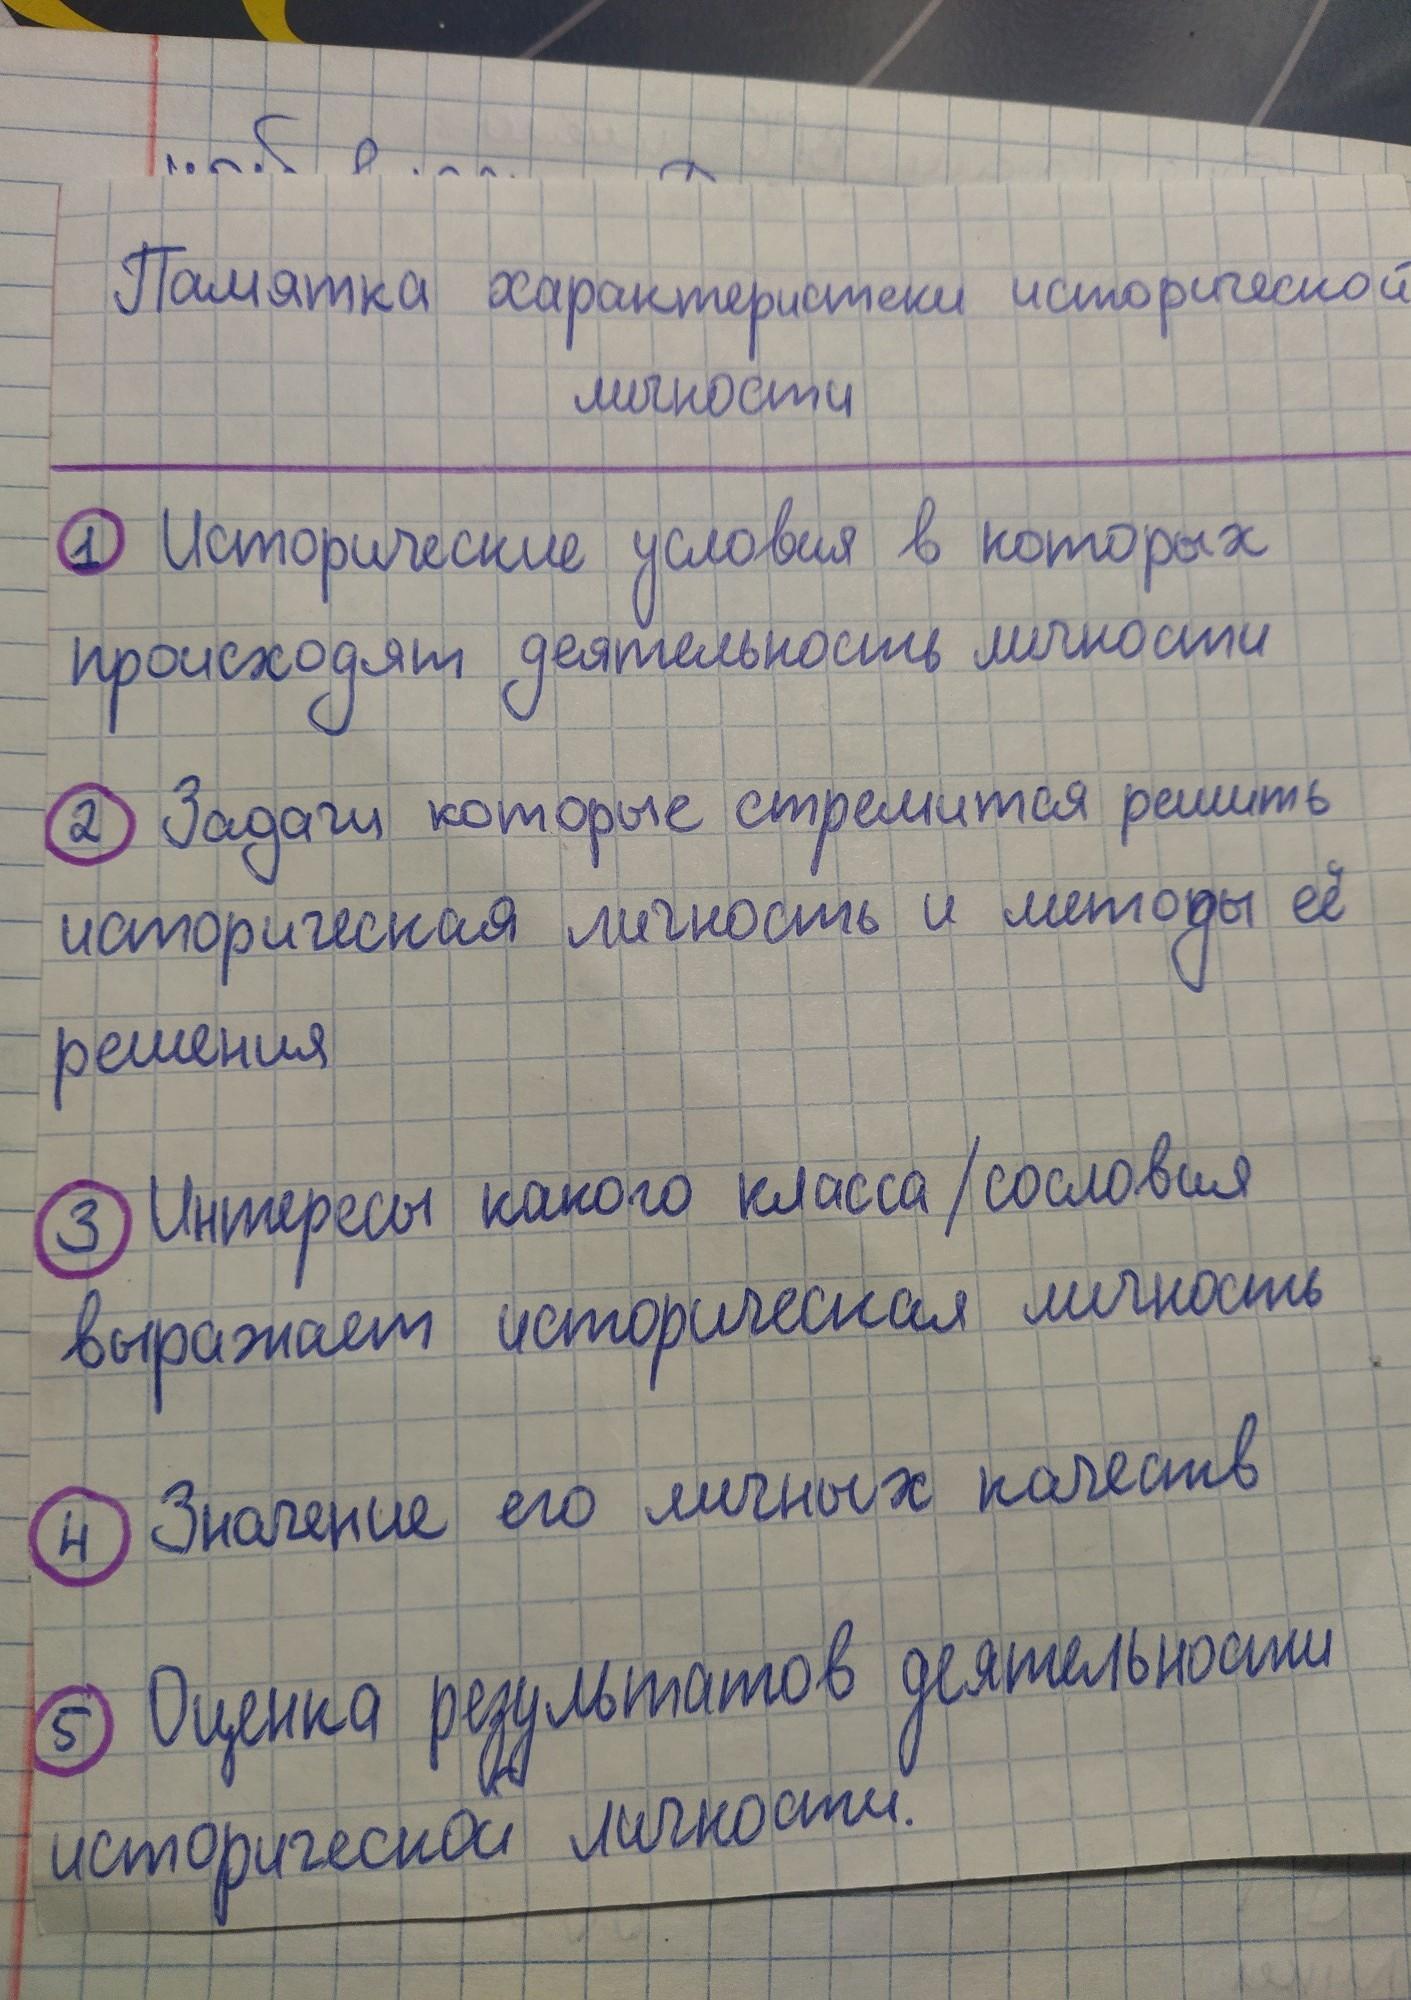 Памятка характеристики исторической
личности
1 Исторические условия в которых
происходят деятельность личности
2 Задачи которые стремится решить
историческая личность и методы её
решения
3 Интересы какого класса/сословия
выражает историческая личность
4 Значение его личных качеств
5 Оценка результатов деятельности
исторической личности.